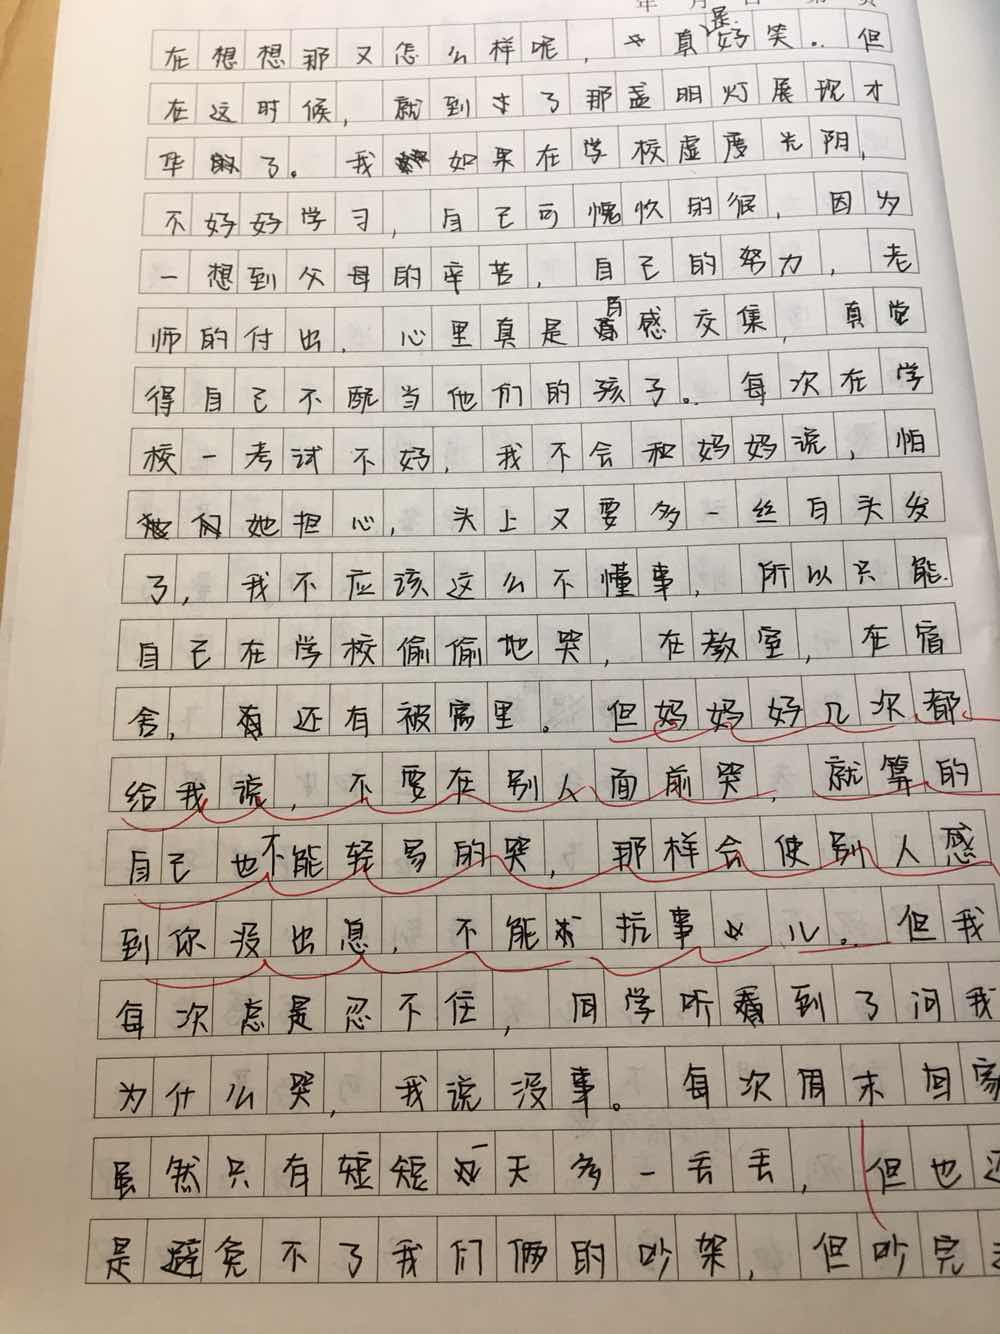 年 月 日 第 页
在想想那又怎么样呢，真是好笑。但
在这时候，就到了那盏明灯展现才
华了。我如果在学校虚度光阴，
不好好学习，自己可愧疚的很，因为
一想到父母的辛苦，自己的努力，老
师的付出，心里真是百感交集，真觉
得自己不配当他们的孩子。每次在学
校一考试不好，我不会和妈妈说，怕
她担心，头上又要多一丝白头发
了，我不应该这么不懂事，所以只能
自己在学校偷偷地哭，在教室，在宿
舍，还有被窝里。但妈妈好几次都
给我说，不要在别人面前哭，就算的
自己也不能轻易的哭，那样会使别人感
到你没出息，不能抗事儿。但我
每次总是忍不住，同学听到了问我
为什么哭，我说没事。每次周末回家
虽然只有短短一天多一丢丢，但也还
是避免不了我们俩的吵架，但吵完